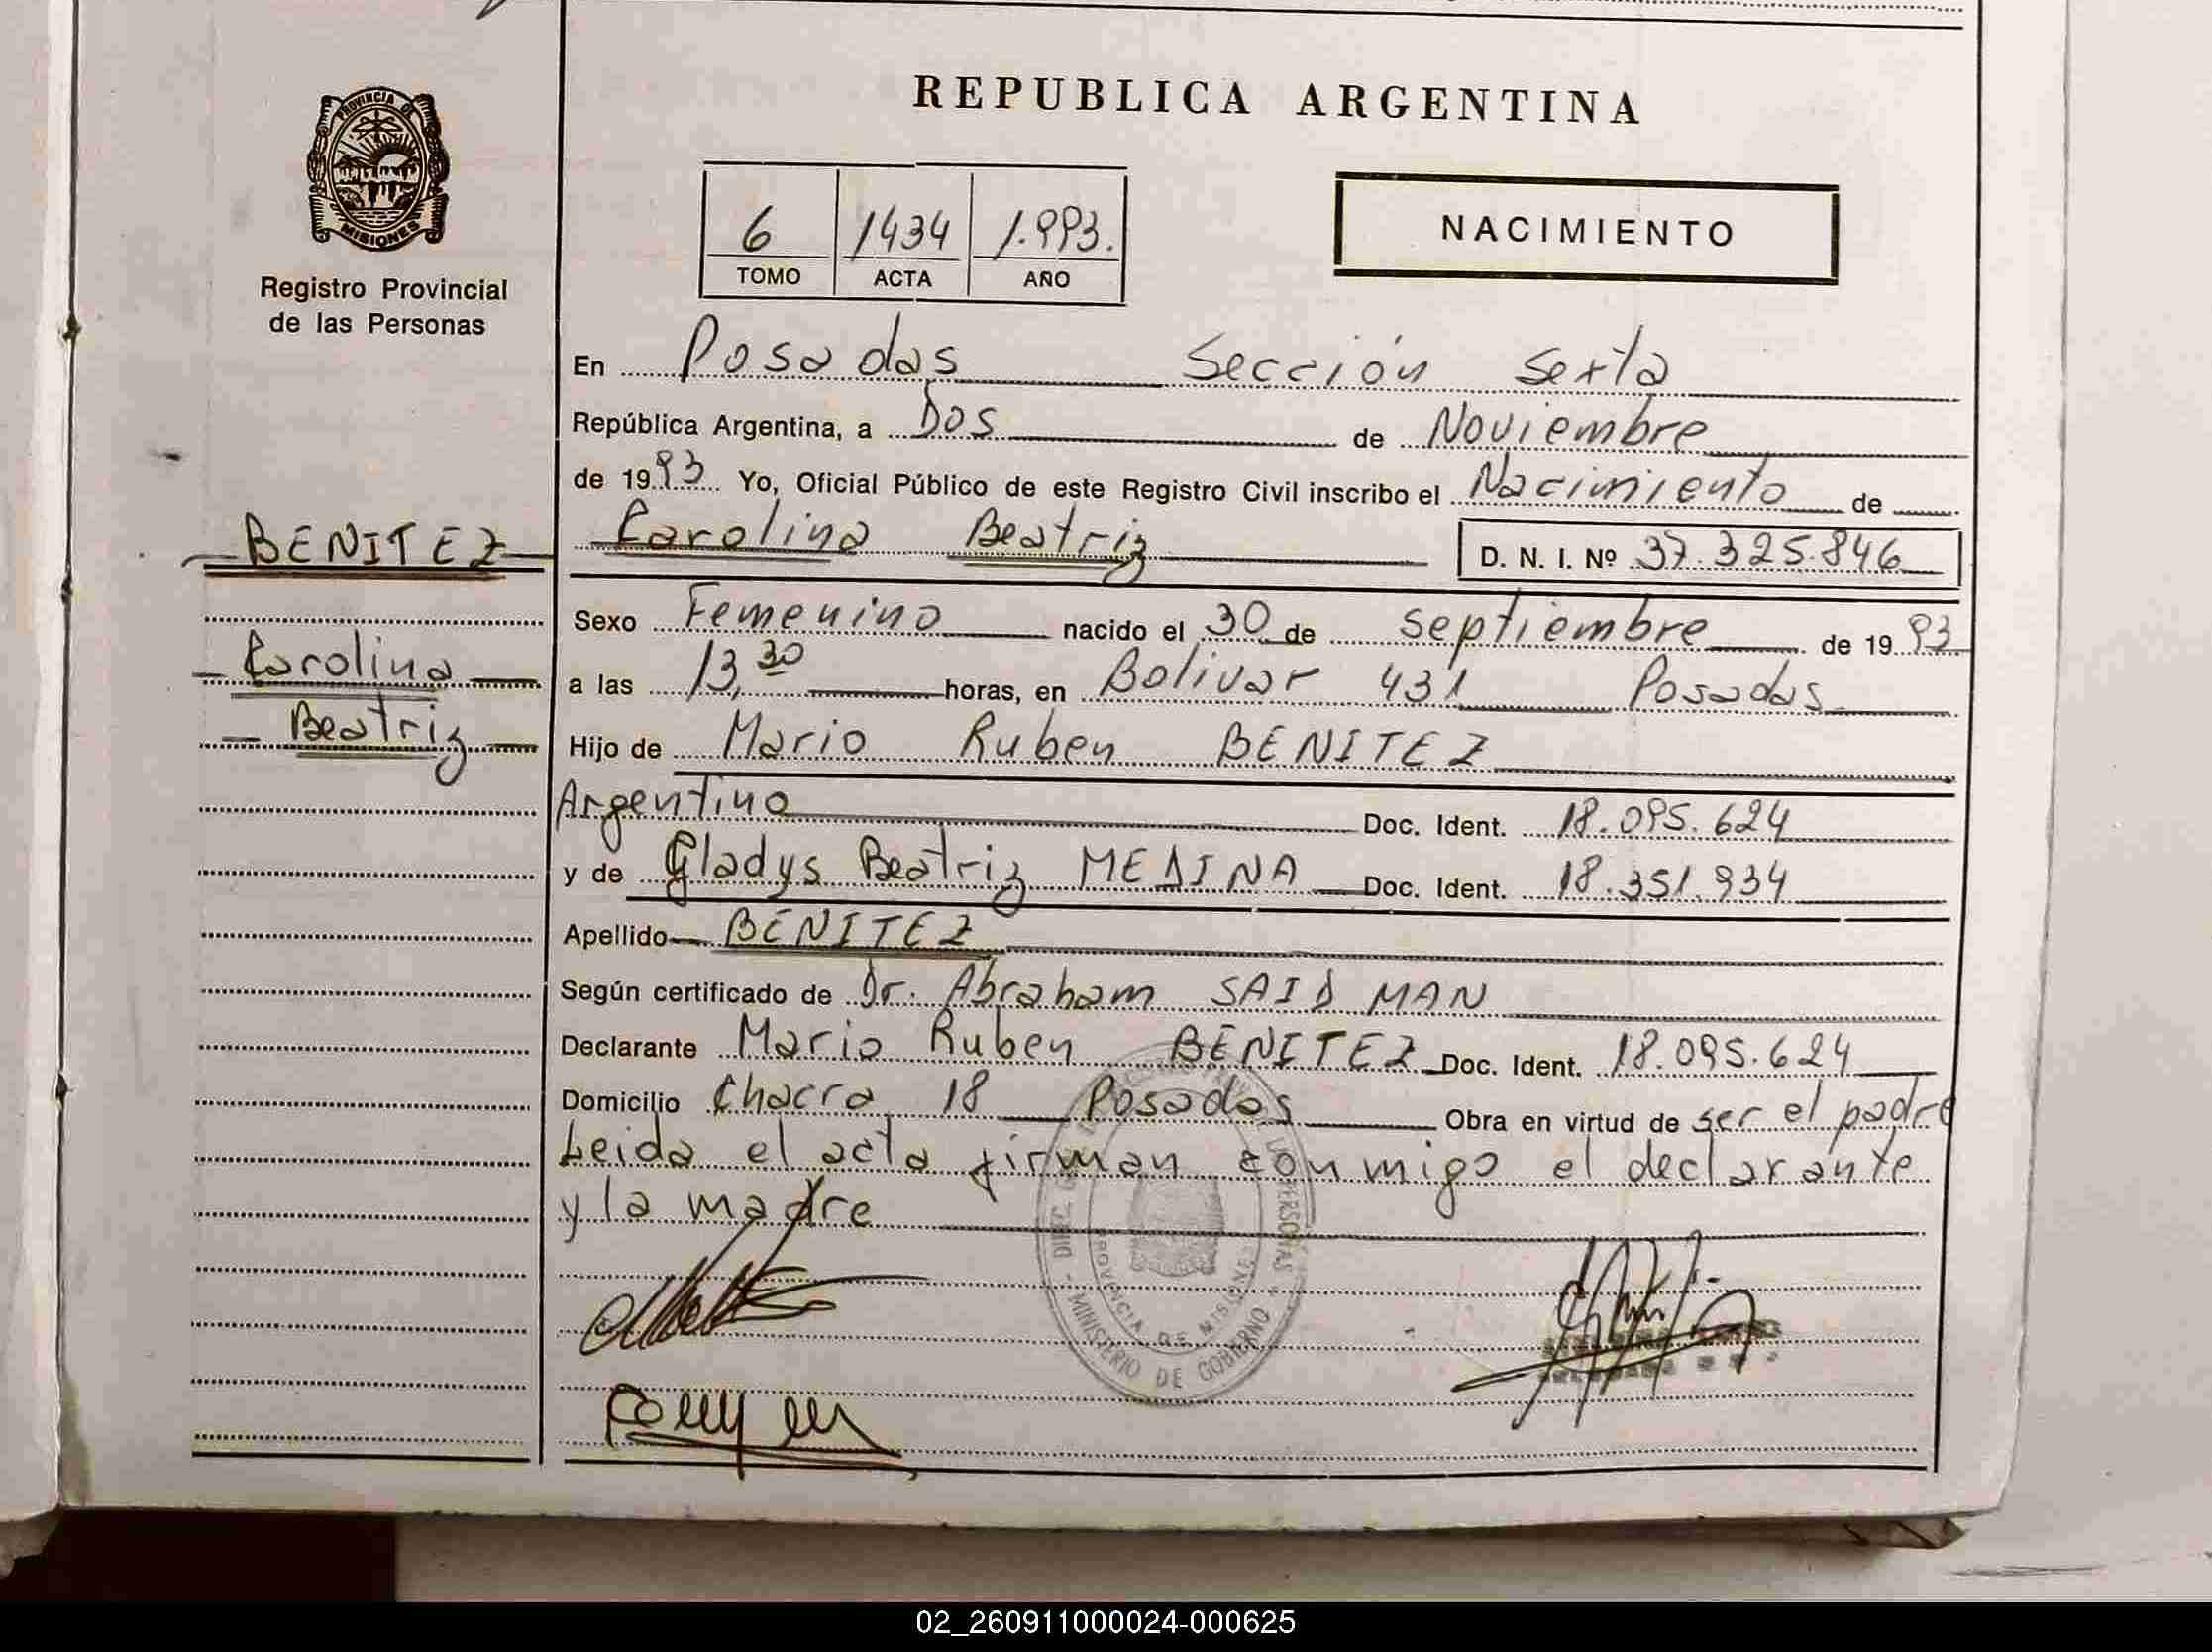 REPUBLICA ARGENTINA
PROVINCIA DE
MISIONES
Registro Provincial
de las Personas
6 1434 1.993.
TOMO ACTA AÑO
NACIMIENTO
En Posadas Sección Sexta
República Argentina, a Dos de Noviembre
de 1993 Yo, Oficial Público de este Registro Civil inscribo el Nacimiento de
Carolina Beatriz D. N. I. Nº 37.325.846
BENITEZ
Carolina
Beatriz
Sexo Femenino nacido el 30 de septiembre de 1993
a las 13,30 horas, en Bolivar 431 Posadas
Hijo de Mario Ruben BENITEZ
Argentino Doc. Ident. 18.095.624
y de Gladys Beatriz MEDINA Doc. Ident. 18.351.934
Apellido BENITEZ
Según certificado de Dr. Abraham SAID MAN
Declarante Mario Ruben BENITEZ Doc. Ident. 18.095.624
Domicilio Chacra 18 Posadas Obra en virtud de ser el padre
Leida el acta firman conmigo el declarante
y la madre
PROVINCIA DE MISIONES
MINISTERIO DE GOBIERNO
02_260911000024-000625